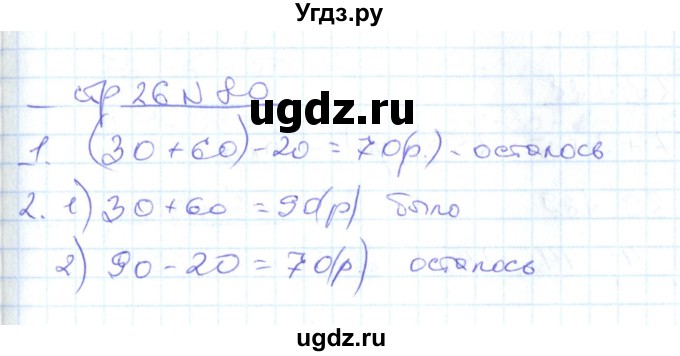 Угдз.ру
стр 26 N 80
ugdz.ru
1. (30+60)-20=70(р.)-осталось
2. 1) 30+60=90(р) было
2) 90-20=70(р) осталось
ugdz.ru